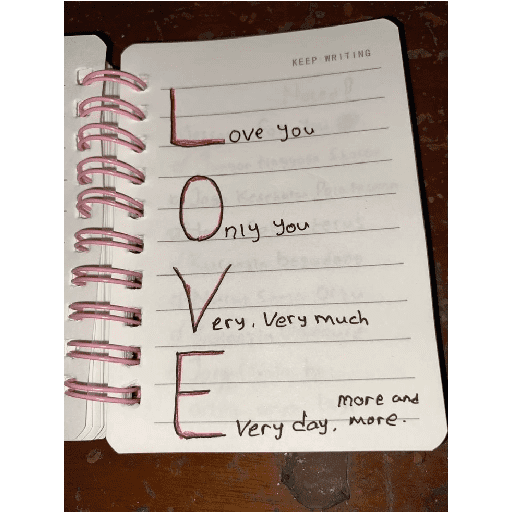 KEEP WRITING
Love you
Only you
Very, Very much
more and
Every day, more.